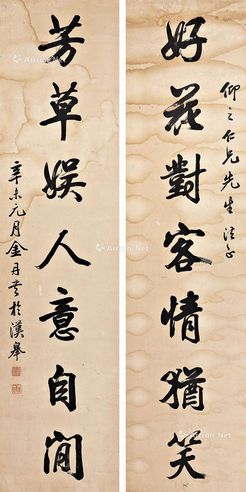 仰之仁兄先生法正
好花對客情猶笑
芳草娱人意自閒
辛未元月金丹書於漢皋